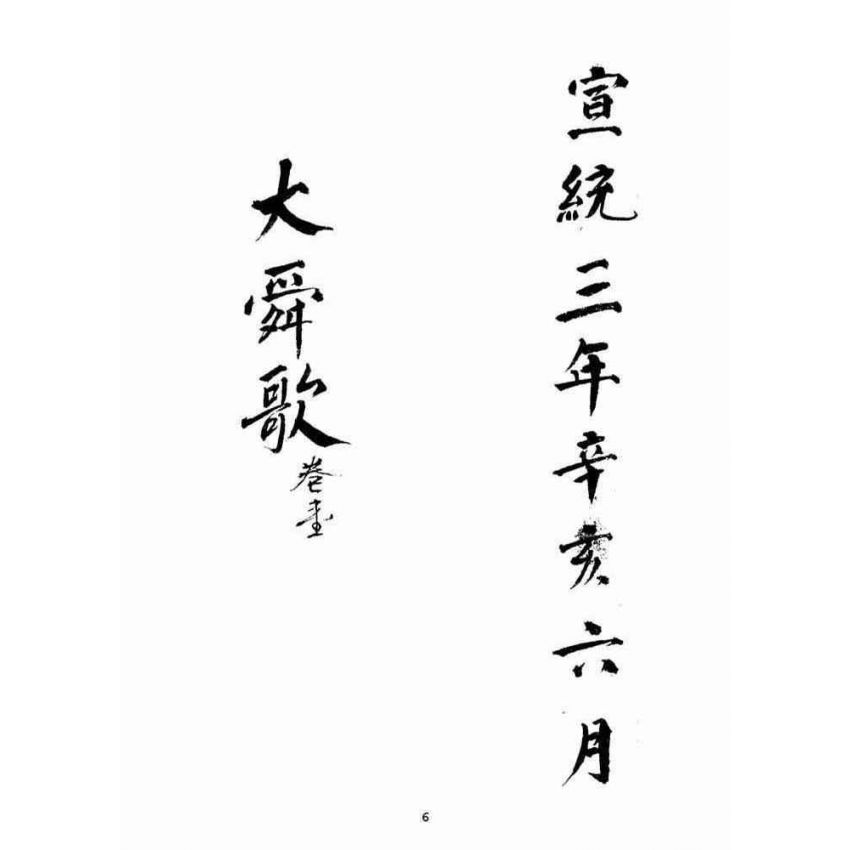 宣統三年辛亥六月
大舜歌
卷壹
6